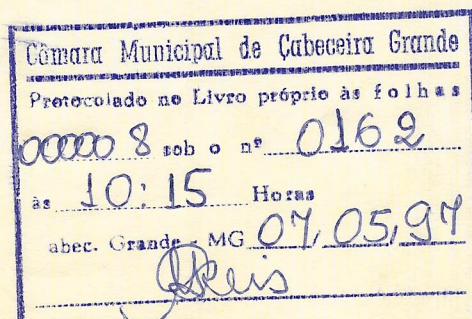 Câmara Municipal de Cabeceira Grande
Protocolado no Livro próprio às folhas
000008 sob o nº 0162
às 10:15 Horas
abec. Grande - MG 07, 05, 97
Reis